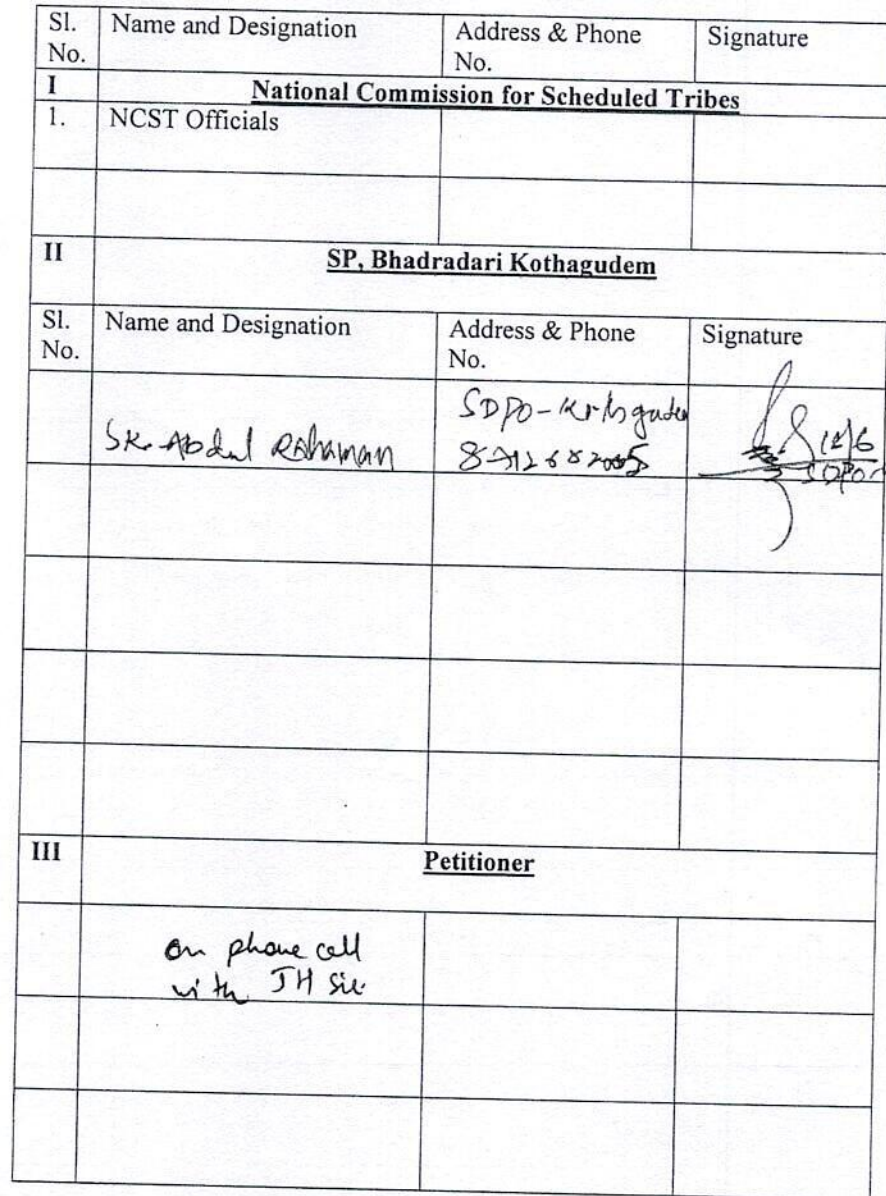 Sl. No. Name and Designation Address & Phone No. Signature
I National Commission for Scheduled Tribes
1. NCST Officials
II SP, Bhadradari Kothagudem
Sl. No. Name and Designation Address & Phone No. Signature
SK. Abdul Rahaman SDPO-
SDPO
III Petitioner
on phone call
with JH Sir